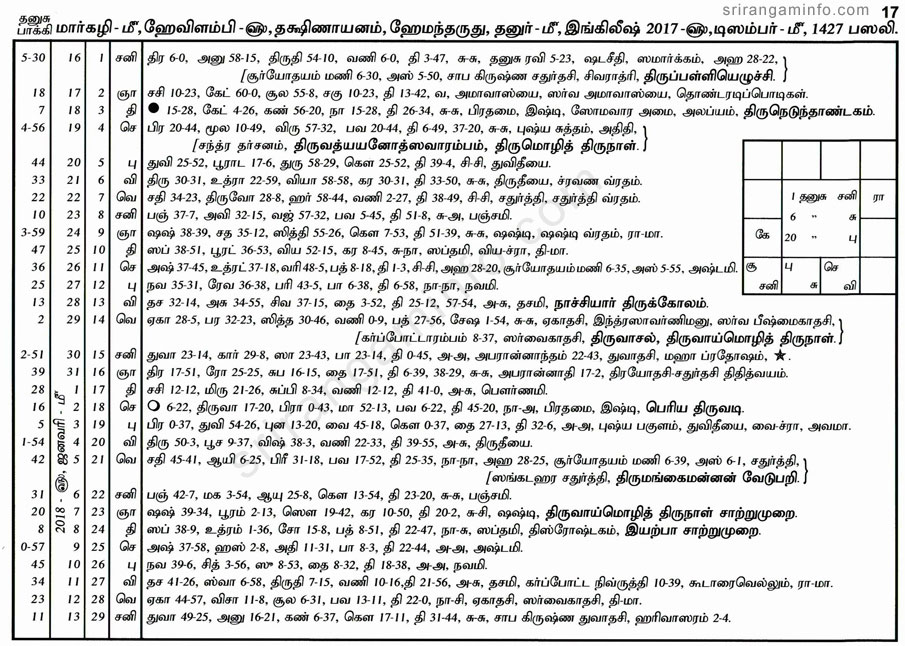 srirangaminfo.com 17
தனுசு
பாக்கி
மார்கழி - மீ, ஹேவிளம்பி - ௵, தக்ஷிணாயனம், ஹேமந்தருது, தனுர் - மீ, இங்கிலீஷ் 2017 - ௵, டிஸம்பர் - மீ, 1427 பஸலி.
5-30 16 1 சனி திர 6-0, அனு 58-15, திருதி 54-10, வணி 6-0, தி 3-47, சு-சு, தனுசு ரவி 5-23, ஷடசீதி, ஸமார்க்கம், அஹ 28-22,
[சூர்யோதயம் மணி 6-30, அஸ் 5-50, சாப கிருஷ்ண சதுர்தசி, சிவராத்ரி, திருப்பள்ளியெழுச்சி.
18 17 2 ஞா சசி 10-23, கேட் 60-0, சூல 55-8, சகு 10-23, தி 13-42, வ, அமாவாஸ்யை, ஸர்வ அமாவாஸ்யை, தொண்டரடிப்பொடிகள்.
7 18 3 தி ● 15-28, கேட் 4-26, கண் 56-20, நா 15-28, தி 26-34, சு-சு, பிரதமை, இஷ்டி, ஸோமவார அமை, அலப்யம், திருநெடுந்தாண்டகம்.
4-56 19 4 செ பிர 20-44, மூல 10-49, விரு 57-32, பவ 20-44, தி 6-49, 37-20, சு-சு, புஷ்ய சுத்தம், அதிதி,
[சந்த்ர தர்சனம், திருவத்யயனோத்ஸவாரம்பம், திருமொழித் திருநாள்.
44 20 5 பு துவி 25-52, பூராட 17-6, துரு 58-29, கௌ 25-52, தி 39-4, சி-சி, துவிதீயை.
33 21 6 வி திரு 30-31, உத்ரா 22-59, வியா 58-58, கர 30-31, தி 33-50, சு-சு, திருதீயை, ச்ரவண வ்ரதம்.
22 22 7 வெ சதி 34-23, திருவோ 28-8, ஹர் 58-44, வணி 2-27, தி 38-49, சி-சி, சதுர்த்தி, சதுர்த்தி வ்ரதம்.
10 23 8 சனி பஞ் 37-7, அவி 32-15, வஜ் 57-32, பவ 5-45, தி 51-8, சு-அ, பஞ்சமி.
3-59 24 9 ஞா ஷஷ் 38-39, சத 35-12, ஸித்தி 55-26, கௌ 7-53, தி 51-39, சு-சு, ஷஷ்டி, ஷஷ்டி வ்ரதம், ரா-மா.
47 25 10 தி ஸப் 38-51, பூரட் 36-53, விய 52-15, கர 8-45, சு-நா, ஸப்தமி, விய-ச்ரா, தி-மா.
36 26 11 செ அஷ் 37-45, உத்ரட் 37-18, வரி 48-5, பத் 8-18, தி 1-3, சி-சி, அஹ 28-20, சூர்யோதயம் மணி 6-35, அஸ் 5-55, அஷ்டமி.
25 27 12 பு நவ 35-31, ரேவ 36-38, பரி 43-5, பா 6-38, தி 6-58, நா-நா, நவமி.
13 28 13 வி தச 32-14, அசு 34-55, சிவ 37-15, தை 3-52, தி 25-12, 57-54, அ-சு, தசமி, நாச்சியார் திருக்கோலம்.
2 29 14 வெ ஏகா 28-5, பர 32-23, ஸித்த 30-46, வணி 0-9, பத் 27-56, சேஷ 1-54, சு-சு, ஏகாதசி, இந்த்ரஸாவர்ணிமனு, ஸர்வ பீஷ்மைகாதசி,
[கர்ப்போட்டாரம்பம் 8-37, ஸர்வைகாதசி, திருவாசல், திருவாய்மொழித் திருநாள்.
2-51 30 15 சனி துவா 23-14, கார் 29-8, ஸா 23-43, பா 23-14, தி 0-45, அ-அ, அபரான்னாந்தம் 22-43, துவாதசி, மஹா ப்ரதோஷம், ★.
39 31 16 ஞா திர 17-51, ரோ 25-25, சுப 16-15, தை 17-51, தி 6-39, 38-29, சு-சு, அபரான்னாதி 17-2, திரயோதசி-சதுர்தசி திதித்வயம்.
28 1 17 தி சசி 12-12, மிரு 21-26, சுப்பி 8-34, வணி 12-12, தி 41-0, அ-சு, பௌர்ணமி.
16 2 18 செ ○ 6-22, திருவா 17-20, பிரா 0-43, மா 52-13, பவ 6-22, தி 45-20, நா-அ, பிரதமை, இஷ்டி, பெரிய திருவடி.
5 3 19 பு பிர 0-37, துவி 54-26, புன 13-20, வை 45-18, கௌ 0-37, தை 27-13, தி 32-6, அ-அ, புஷ்ய பகுளம், துவிதீயை, வை-ச்ரா, அவமா.
1-54 4 20 வி திரு 50-3, பூச 9-37, விஷ் 38-3, வணி 22-33, தி 39-55, அ-சு, திருதீயை.
42 5 21 வெ சதி 45-41, ஆயி 6-25, பிரீ 31-18, பவ 17-52, தி 25-35, நா-நா, அஹ 28-25, சூர்யோதயம் மணி 6-39, அஸ் 6-1, சதுர்த்தி,
[ஸங்கடஹர சதுர்த்தி, திருமங்கைமன்னன் வேடுபறி.
31 6 22 சனி பஞ் 42-7, மக 3-54, ஆயு 25-8, கௌ 13-54, தி 23-20, சு-சு, பஞ்சமி.
20 7 23 ஞா ஷஷ் 39-34, பூரம் 2-13, ஸௌ 19-42, கர 10-50, தி 20-2, சு-சி, ஷஷ்டி, திருவாய்மொழித் திருநாள் சாற்றுமுறை.
8 8 24 தி ஸப் 38-9, உத்ரம் 1-36, சோ 15-8, பத் 8-51, தி 22-47, நா-சு, ஸப்தமி, திஸ்ரோஷ்டகம், இயற்பா சாற்றுமுறை.
0-57 9 25 செ அஷ் 37-58, ஹஸ் 2-8, அதி 11-31, பா 8-3, தி 22-44, அ-அ, அஷ்டமி.
45 10 26 பு நவ 39-6, சித் 3-56, ஸு 8-53, தை 8-32, தி 18-38, அ-அ, நவமி.
34 11 27 வி தச 41-26, ஸ்வா 6-58, திருதி 7-15, வணி 10-16, தி 21-56, அ-சு, தசமி, கர்ப்போட்ட நிவ்ருத்தி 10-39, கூடாரைவெல்லும், ரா-மா.
23 12 28 வெ ஏகா 44-57, விசா 11-8, சூல 6-31, பவ 13-11, தி 22-0, நா-சி, ஏகாதசி, ஸர்வைகாதசி, தி-மா.
11 13 29 சனி துவா 49-25, அனு 16-21, கண் 6-37, கௌ 17-11, தி 31-44, சு-சு, சாப கிருஷ்ண துவாதசி, ஹரிவாஸரம் 2-4.
2018 - ௵, ஜனவரி - மீ
1 தனுசு சனி ரா
6 " சு
கே 20 " பு
சூ பு செ
சனி சு வி
srirangaminfo.com